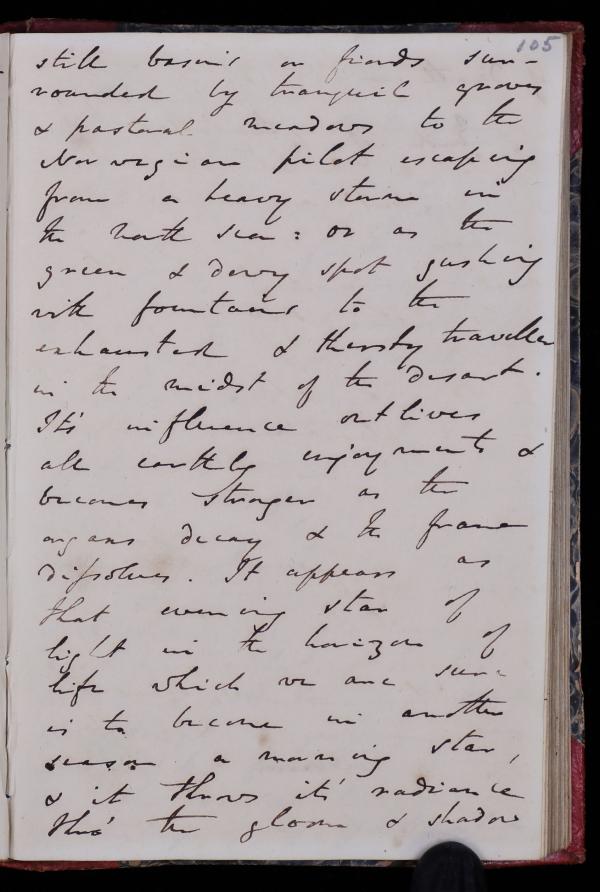 105
still basins or fiords sur-
rounded by tranquil groves
& pastoral meadows to the
Norwegian pilot escaping
from a heavy storm in
the north sea: or as the
green & dewy spot gushing
with fountains to the
exhausted & thirsty traveller
in the midst of the desart.
It's influence outlives
all earthly enjoyments &
becomes stronger as the
organs decay & the frame
dissolves. It appears as
that evening star of
light in the horizon of
life which we are sure
is to become in another
season a morning star,
& it throws it's radiance
thro' the gloom & shadow